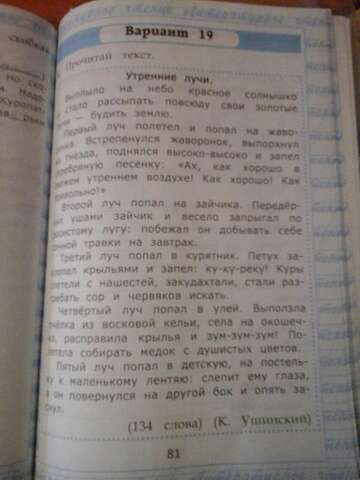 Вариант 19
Прочитай текст.
Утренние лучи.
Выплыло на небо красное солнышко
стало рассыпать повсюду свои золотые
— будить землю.
Первый луч полетел и попал на жаво-
ронка. Встрепенулся жаворонок, выпорхнул
гнезда, поднялся высоко-высоко и запел
серебряную песенку: «Ах, как хорошо в
свежем утреннем воздухе! Как хорошо! Как
привольно!»
Второй луч попал на зайчика. Передёр-
ул ушами зайчик и весело запрыгал по
росистому лугу: побежал он добывать себе
сочной травки на завтрак.
Третий луч попал в курятник. Петух за-
хлопал крыльями и запел: ку-ку-реку! Куры
слетели с нашестей, закудахтали, стали раз-
гребать сор и червяков искать.
Четвёртый луч попал в улей. Выползла
пчёлка из восковой кельи, села на окошеч-
ко, расправила крылья и зум-зум-зум! По-
летела собирать медок с душистых цветов.
Пятый луч попал в детскую, на постель-
ку к маленькому лентяю: слепит ему глаза,
а он повернулся на другой бок и опять за-
снул.
(134 слова) (К. Ушинский)
81